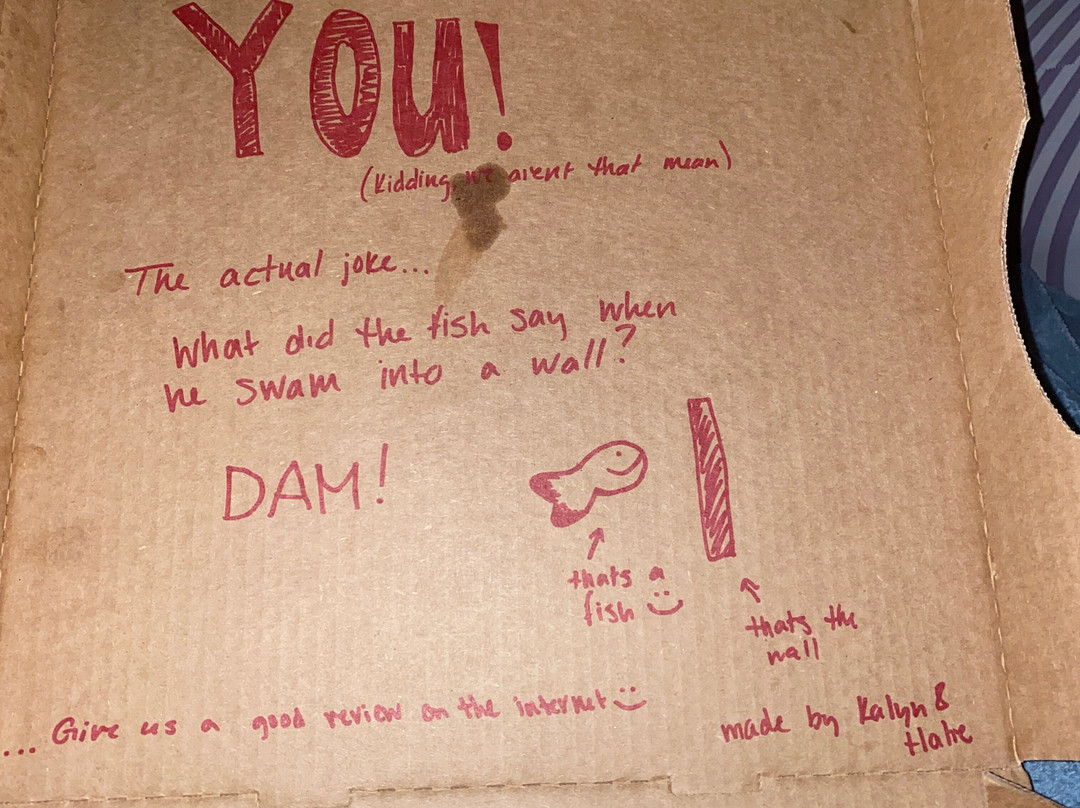 YOU!
(kidding, we arent that mean)
The actual joke...
What did the fish say when
he swam into a wall?
DAM!
thats a
fish
thats the
wall
... Give us a good review on the internet
made by Kalyn &